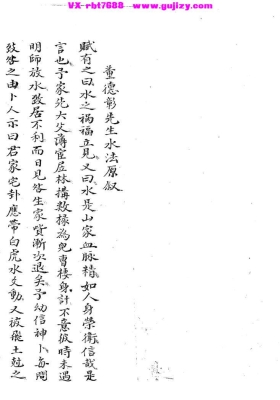 VX-rbt7688 www.gujizy.com
董德彰先生水法原叙
賦有之曰水之禍福立見又曰水是山家血脉精如人身榮衛信哉是
言也予家先大父薄宦居林構數椽為兒曹棲身計不意彼時未遇
明師放水致居不利而日見咎生家貲漸次退矣予幼信神卜每問
致咎之由卜人示曰君家宅卦應帶白虎水爻動又被飛土尅之